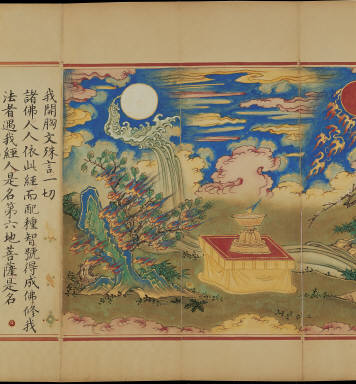 我開胸文殊言一切
諸佛人人依此經而配種智號得成佛修我
法者遇我經人是名第六地菩薩是名